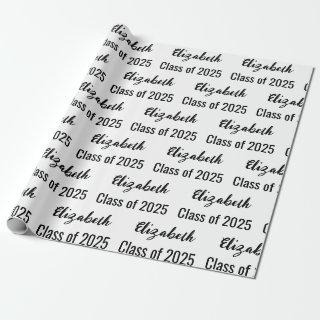 Elizabeth
Elizabeth
Class of 2025
Elizabeth
Class of 2025
Elizabeth
Class of 2025
Elizabeth
Class of 2025
Elizabeth
Class of 2025
Elizabeth
Class of 2025
Elizabeth
Class of 2025
Elizabeth
Class of 2025
Class of 2025